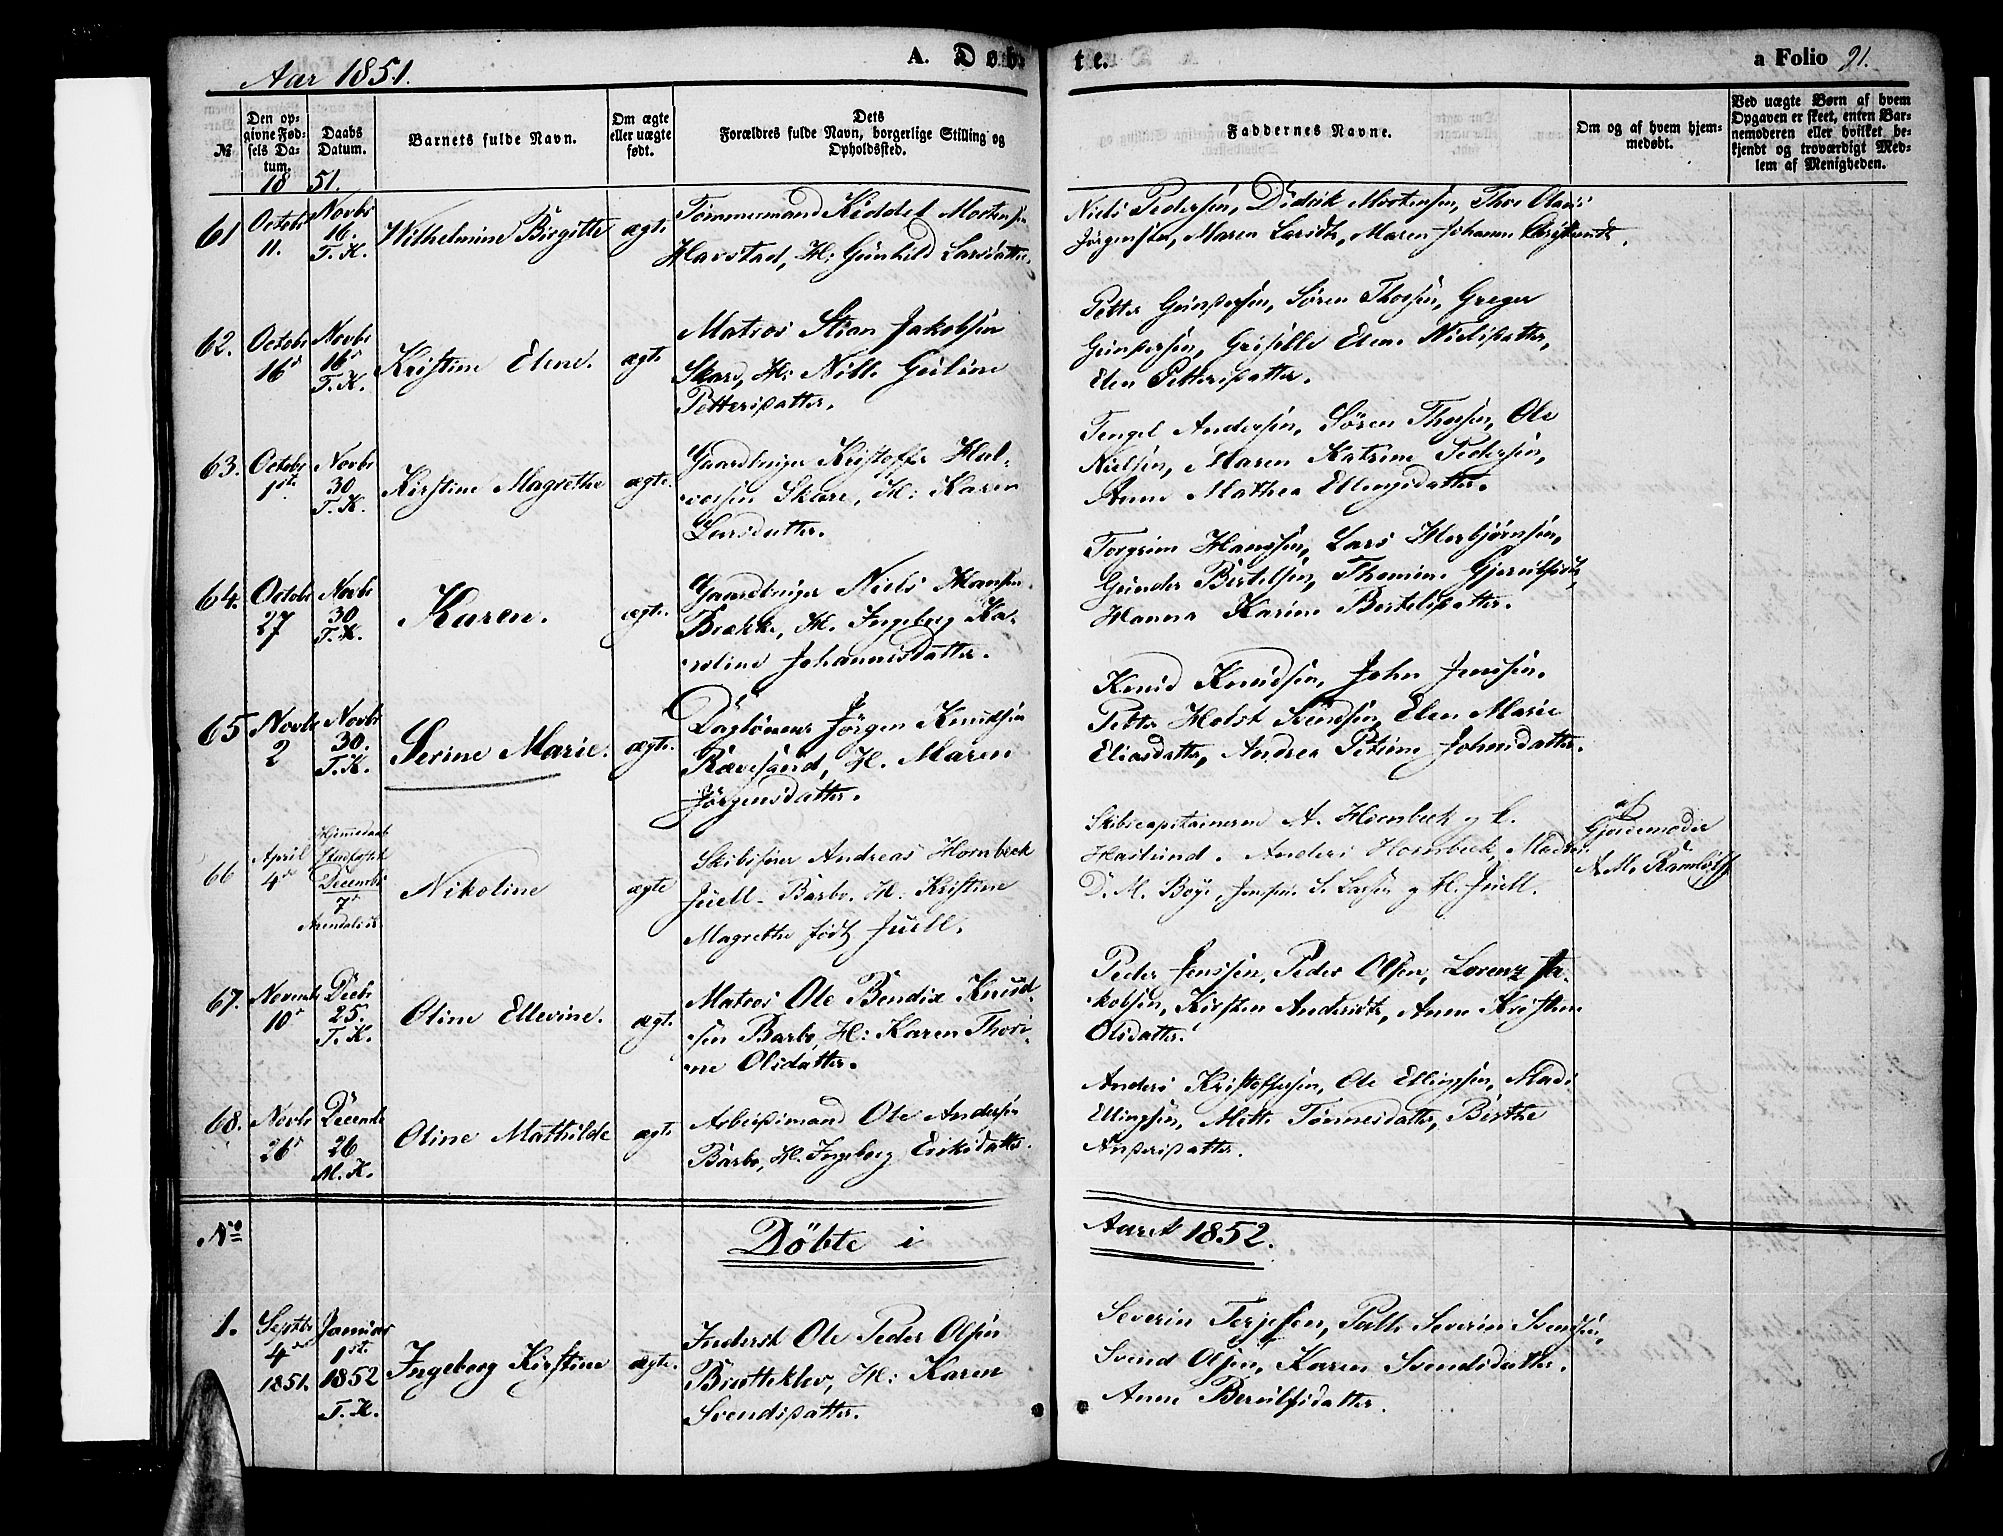 Aar 1851.
A. Døbte.
a Folio 21.
№
Den opgivne Fødsels Datum.
Daabs Datum.
Barnets fulde Navn.
Om ægte eller uægte født.
Dets Forældres fulde Navn, borgerlige Stilling og Opholdssted.
Faddernes Navne.
Om og af hvem hjemmedøbt.
Ved uægte Børn af hvem Opgaven er skeet, enten Barnemoderen eller hvilket bekjendt og troværdigt Medlem af Menigheden.
1851.
61 Octobr 11. Novbr 16. T. K. Wilhelmine Birgitte ægte
Tömmermand Kiddel Mortensen
Havstad, H: Gunhild Larsdatter.
Niels Pedersen, Didrik Mortensen, Thor Olaus
Jörgensen, Maren Larsdtr, Maren Johanne
62. Octobr 16d Novbr 16d T. K. Kristine Elene. ægte
Matros Stian Jakobsen
Skare, H: Nille Gurine
Pettersdatter.
Petter Gundersen, Sören Thorsen, Greger
Gundersen, Grisille Elene Nielsdatter,
Elen Pettersdatter.
63. Octobr 1ste Novbr 30 T. K. Kirstine Magrethe ægte.
Gaardbruger Kristoffer Hal-
vorsen Skare, H: Karen
Larsdatter.
Tengel Andersen, Sören Thorsen, Ole
Nielsen, Maren Katrine Pedersen,
Anne Mathea Ellingsdatter.
64. Octobr 27 Novbr 30 T. K. Karen. ægte.
Gaardbruger Niels Hansen
Brække, H. Ingeborg Ka-
roline Johannesdatter.
Torgrim Hanssen, Lars Herbjörnsen,
Gunder Bertelsen, Thomine
Hanna Karine Bertelsdatter.
65 Novbr 2 Novbr 30. T. K. Serine Marie. ægte.
Daglönner Jörgen Knudsen
Rævesand, H. Maren
Jörgensdatter.
Knud Knudsen, John Jenssen,
Petter Holst Svendsen, Elen Marie
Eliasdatter, Andrea Petrine Johnsdatter.
66 April 4de Hjemmedaab Stadfæstet Decembr 7d Arendals K. Nikoline ægte
Skibsförer Andreas Hornbeck
Juell - Barbo. H. Kristine
Magrethe födt Juell.
Skibscapitainerne A. Hornbeck og C.
Haslund. Anders Hornbeck, Mad:
D. M. Boye, Jomfru S. Larsen og H. Juell.
af
Gjordemoder
A. M.
67. Novembr 10d Decbr 25. T. K. Oline Ellevine. ægt.
Matros Ole Bendix Knud-
sen Barbo, H: Karen Thori-
ne Olsdatter.
Peder Jenssen, Peder Olsen, Lorenz Ja-
kobsen, Kirsten Andersdtr, Anne Kristine
Olsdatter.
68. Novbr 26d Decembr 26 M. K. Oline Mathilde ægte
Arbeidsmand Ole Andersen
Barbo, H. Ingeborg Eriksdatter.
Anders Kristoffersen, Ole Ellingsen, Mads
Ellingsen, Mette Tönnesdatter, Birthe
Andersdatter.
No
Döbte i Aaret 1852.
1. Septbr 4de 1851. Januar 1ste 1852 T. K. Ingeborg Kirstine ægte.
Inderst Ole Peder Olsen
Bratteklev, H: Karen
Svendsdatter.
Severin Terjesen, Palle Severin Svendsen,
Svend Olsen, Karen Svendsdatter.
Anne Berulfsdatter.